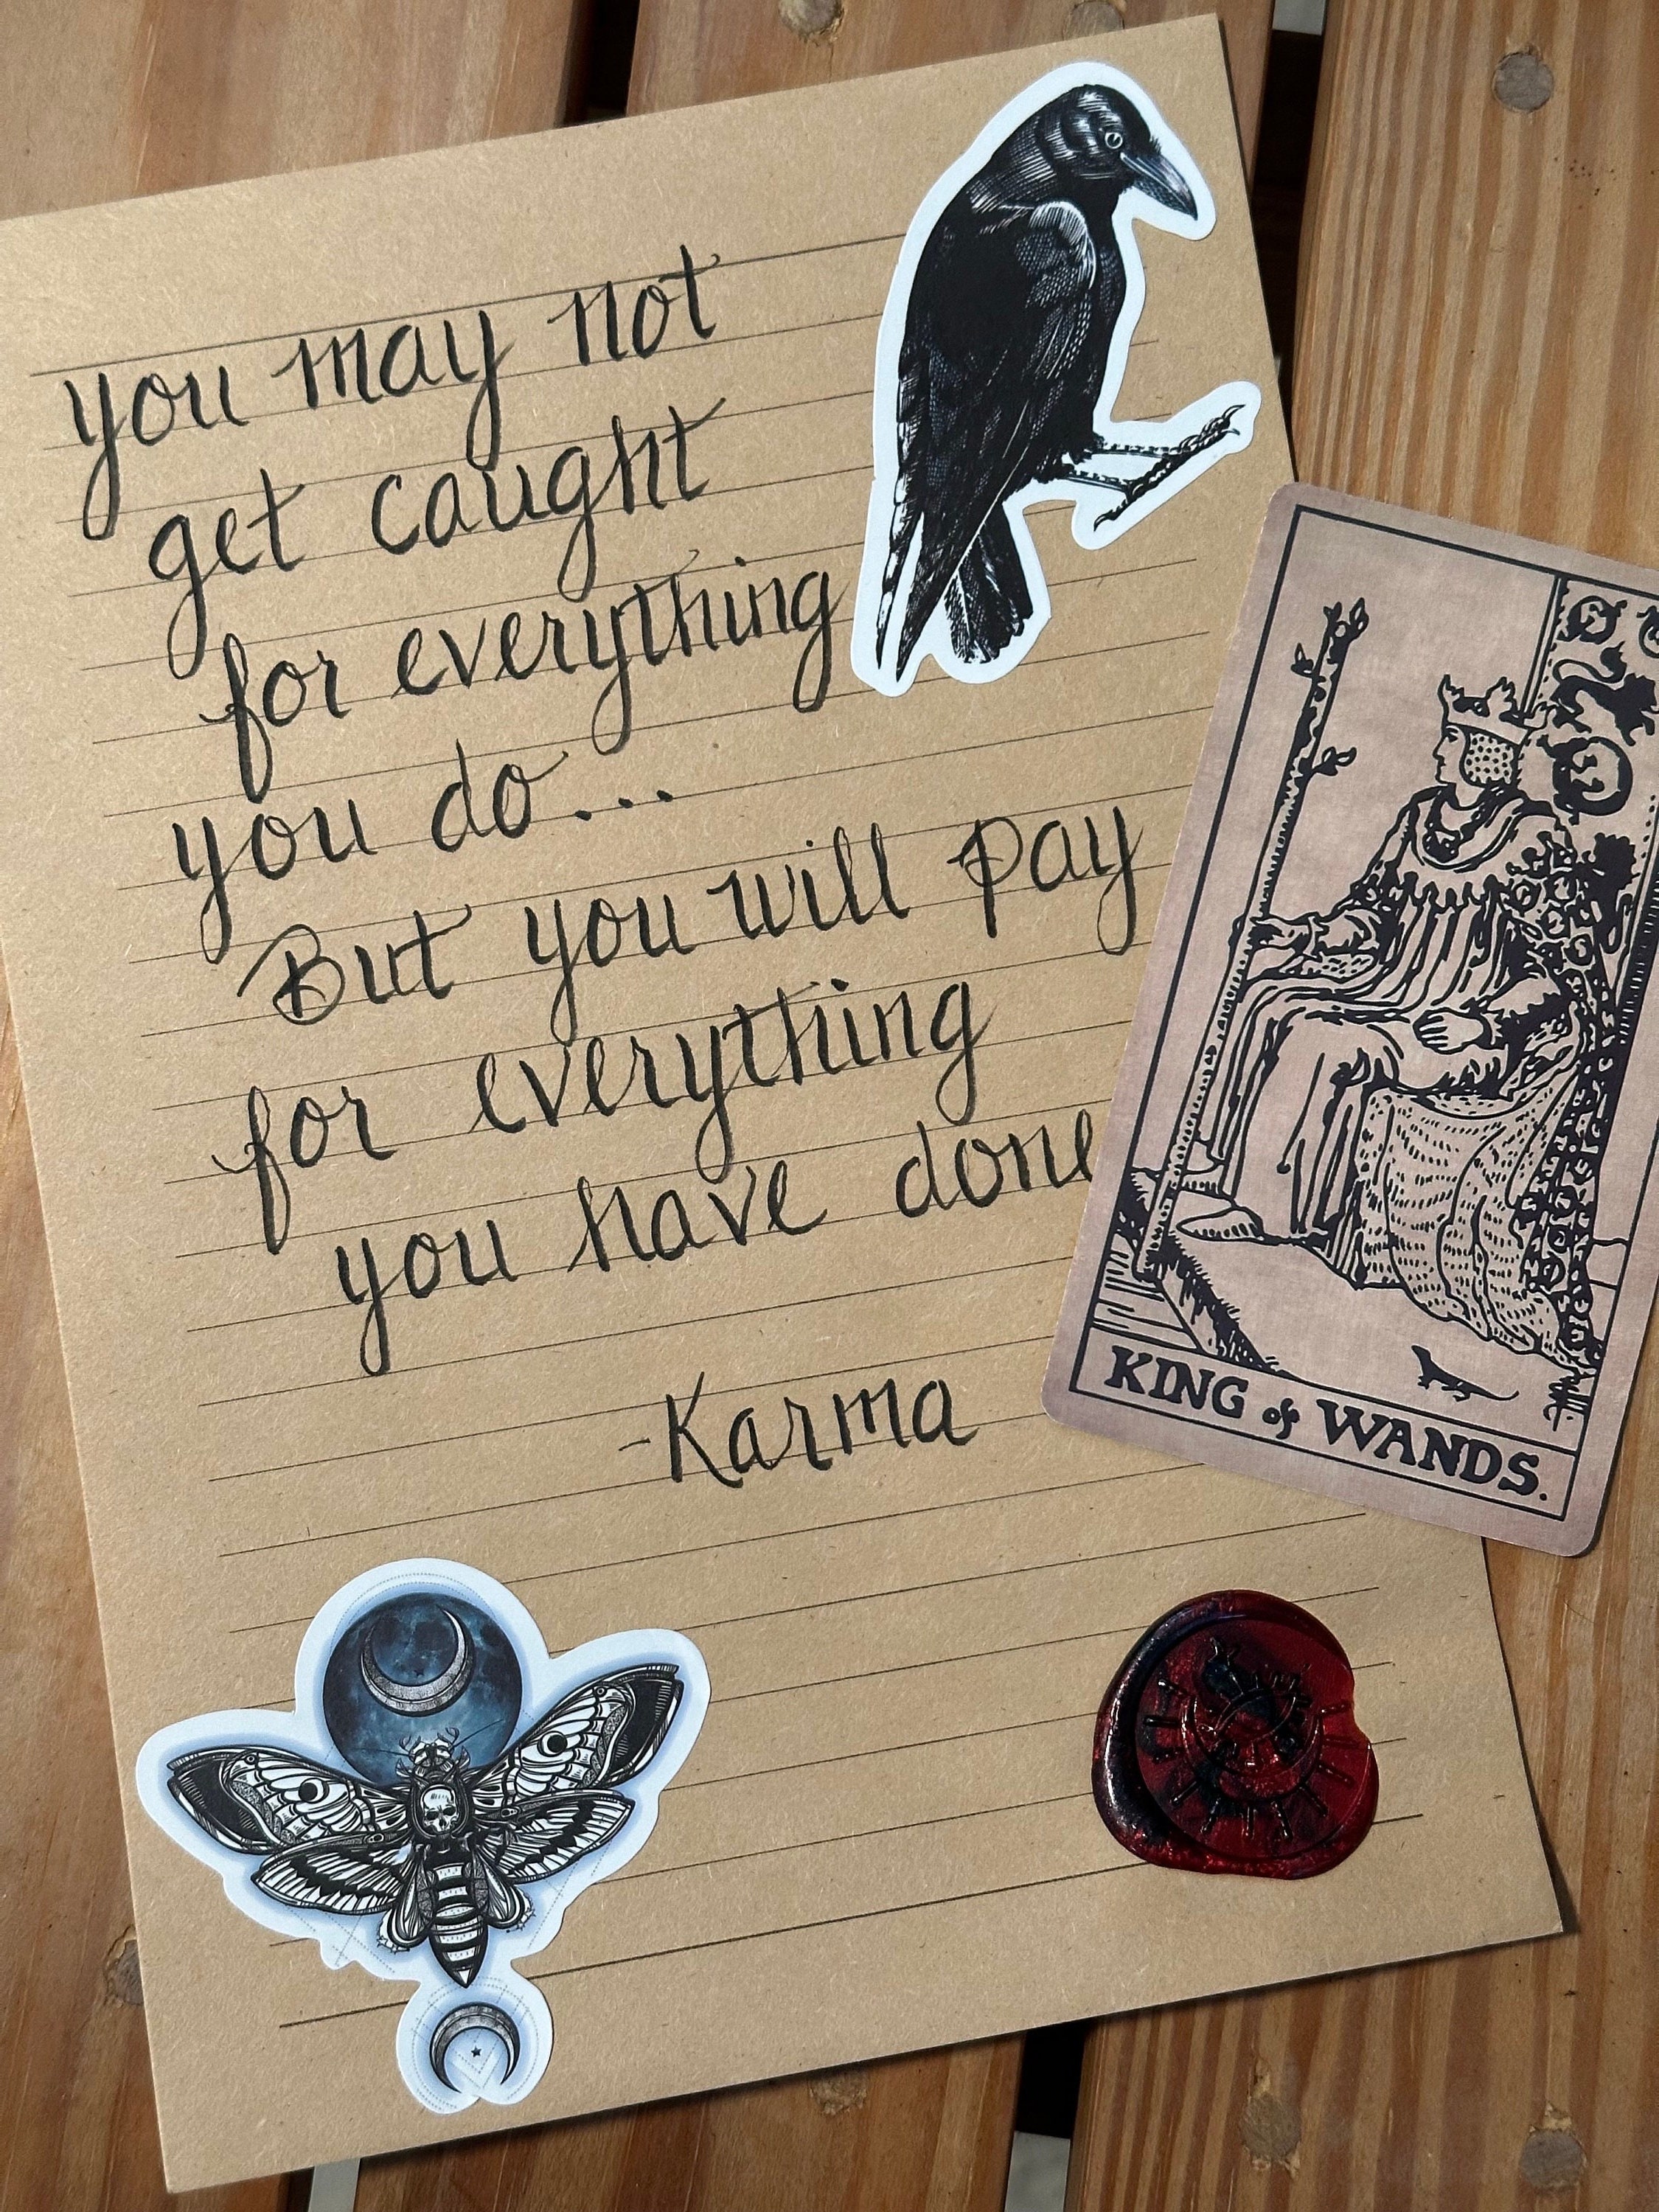 you may not
get caught
for everything
you do...
But you will pay
for everything
you have done
-Karma
KING of WANDS.